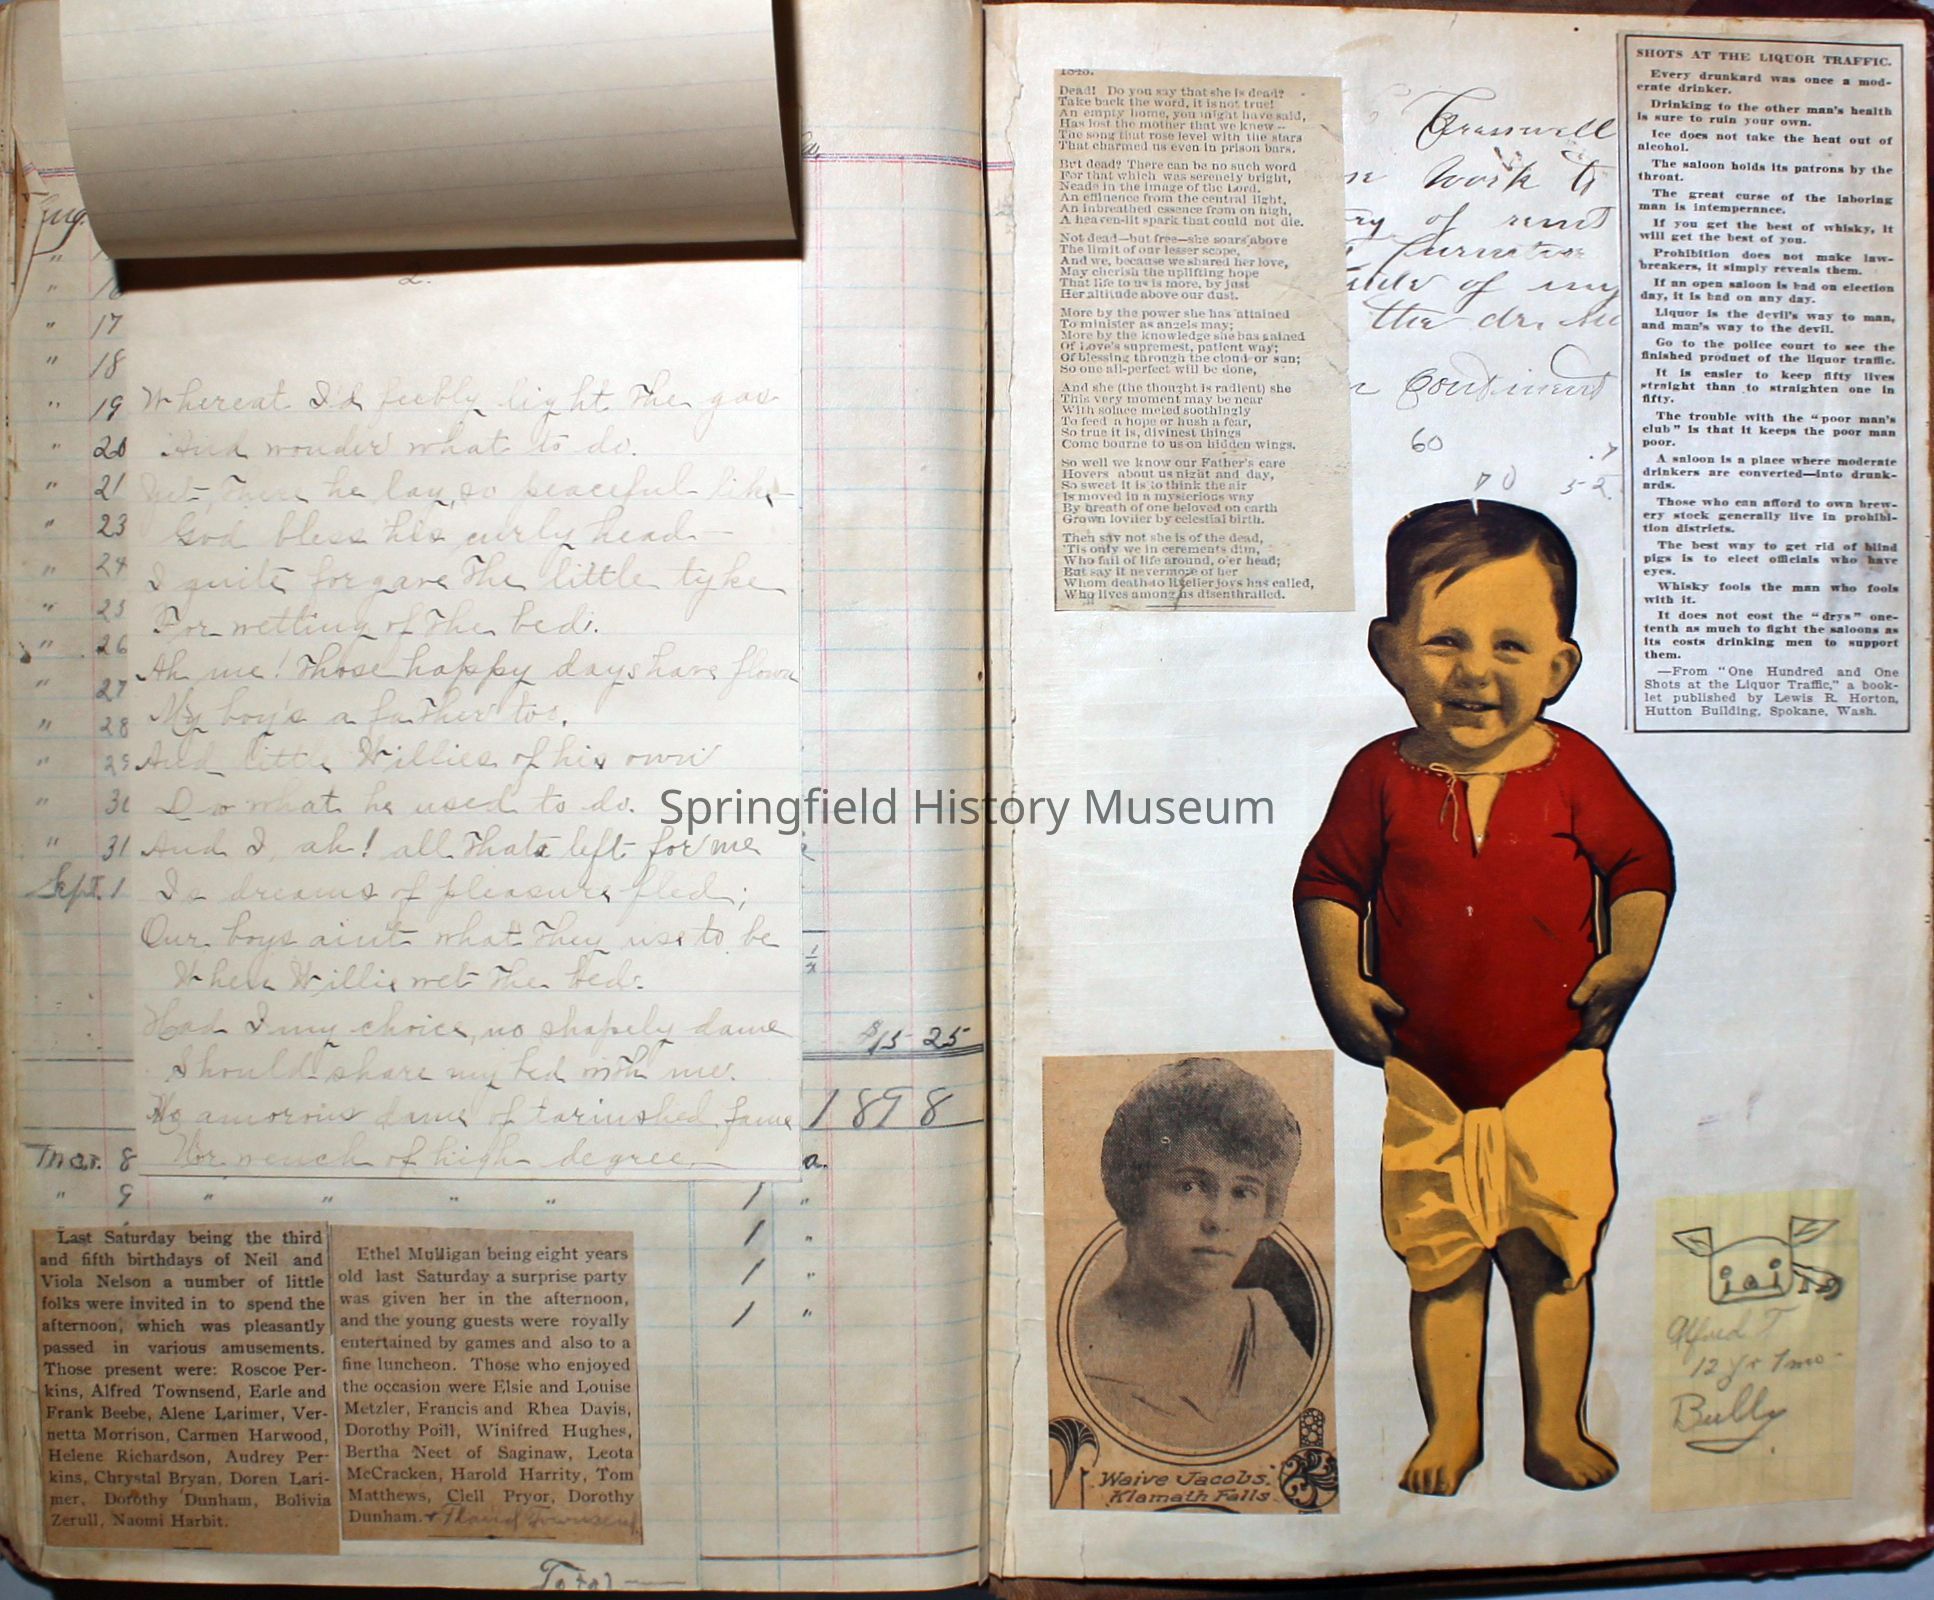 Aug.
"
" 16
" 17
" 18
" 19
" 20
" 21
" 23
" 24
" 25
" 26
" 27
" 28
" 29
" 30
" 31
Sept. 1
$15 25
1898
Mar. 8
" 9 " " " " 1 "
1 "
1 "
1 "
Total
2.
Whereat I'd feebly light the gas
And wonder what to do.
Yet, there he lay, so peaceful like
God bless his curly head
I quite forgave the little tyke
For wetting of the bed.
Ah me! Those happy days have flown
My boy's a father too.
And little Willies of his own
Do what he used to do.
And I, ah! all thats left for me
Is dreams of pleasure fled;
Our boys aint what they use to be
When Willie wet the bed.
Had I my choice, no shapely dame
Should share my bed with me.
No amorous dame of tarnished fame
Nor wench of high degree
Last Saturday being the third
and fifth birthdays of Neil and
Viola Nelson a number of little
folks were invited in to spend the
afternoon, which was pleasantly
passed in various amusements.
Those present were: Roscoe Per-
kins, Alfred Townsend, Earle and
Frank Beebe, Alene Larimer, Ver-
netta Morrison, Carmen Harwood,
Helene Richardson, Audrey Per-
kins, Chrystal Bryan, Doren Lari-
mer, Dorothy Dunham, Bolivia
Zerull, Naomi Harbit.
Ethel Mulligan being eight years
old last Saturday a surprise party
was given her in the afternoon,
and the young guests were royally
entertained by games and also to a
fine luncheon. Those who enjoyed
the occasion were Elsie and Louise
Metzler, Francis and Rhea Davis,
Dorothy Poill, Winifred Hughes,
Bertha Neet of Saginaw, Leota
McCracken, Harold Harrity, Tom
Matthews, Clell Pryor, Dorothy
Dunham. Townsend
Springfield History Museum
1848.
Dead! Do you say that she is dead?
Take back the word, it is not true!
An empty home, you might have said,
Has lost the mother that we knew—
The song that rose level with the stars
That charmed us even in prison bars.
But dead? There can be no such word
For that which was serenely bright,
Neads in the image of the Lord.
An effluence from the central light,
An inbreathed essence from on high,
A heaven-lit spark that could not die.
Not dead—but free—she soars above
The limit of our lesser scope,
And we, because we shared her love,
May cherish the uplifting hope
That life to us is more, by just
Her altitude above our dust.
More by the power she has attained
To minister as angels may;
More by the knowledge she has gained
Of Love's supremest, patient way;
Of blessing through the cloud or sun;
So one all-perfect will be done,
And she (the thought is radient) she
This very moment may be near
With solace meted soothingly
To feed a hope or hush a fear,
So true it is, divinest things
Come bourne to us on hidden wings.
So well we know our Father's care
Hovers about us night and day,
So sweet it is to think the air
Is moved in a mysterious way
By breath of one beloved on earth
Grown lovlier by celestial birth.
Then say not she is of the dead,
'Tis only we in cerements dim,
Who fail of life around, o'er head;
But say it nevermore of her
Whom death to livelier joys has called,
Who lives among us disenthralled.
Work
of
of my
the
60
70 52
SHOTS AT THE LIQUOR TRAFFIC.
Every drunkard was once a mod-
erate drinker.
Drinking to the other man's health
is sure to ruin your own.
Ice does not take the heat out of
alcohol.
The saloon holds its patrons by the
throat.
The great curse of the laboring
man is intemperance.
If you get the best of whisky, it
will get the best of you.
Prohibition does not make law-
breakers, it simply reveals them.
If an open saloon is bad on election
day, it is bad on any day.
Liquor is the devil's way to man,
and man's way to the devil.
Go to the police court to see the
finished product of the liquor traffic.
It is easier to keep fifty lives
straight than to straighten one in
fifty.
The trouble with the "poor man's
club" is that it keeps the poor man
poor.
A saloon is a place where moderate
drinkers are converted—into drunk-
ards.
Those who can afford to own brew-
ery stock generally live in prohibi-
tion districts.
The best way to get rid of blind
pigs is to elect officials who have
eyes.
Whisky fools the man who fools
with it.
It does not cost the "drys" one-
tenth as much to fight the saloons as
its costs drinking men to support
them.
—From "One Hundred and One
Shots at the Liquor Traffic," a book-
let published by Lewis R. Horton,
Hutton Building, Spokane, Wash.
Waive Jacobs,
Klamath Falls
Alfred T
12 yr 7 mo
Bully